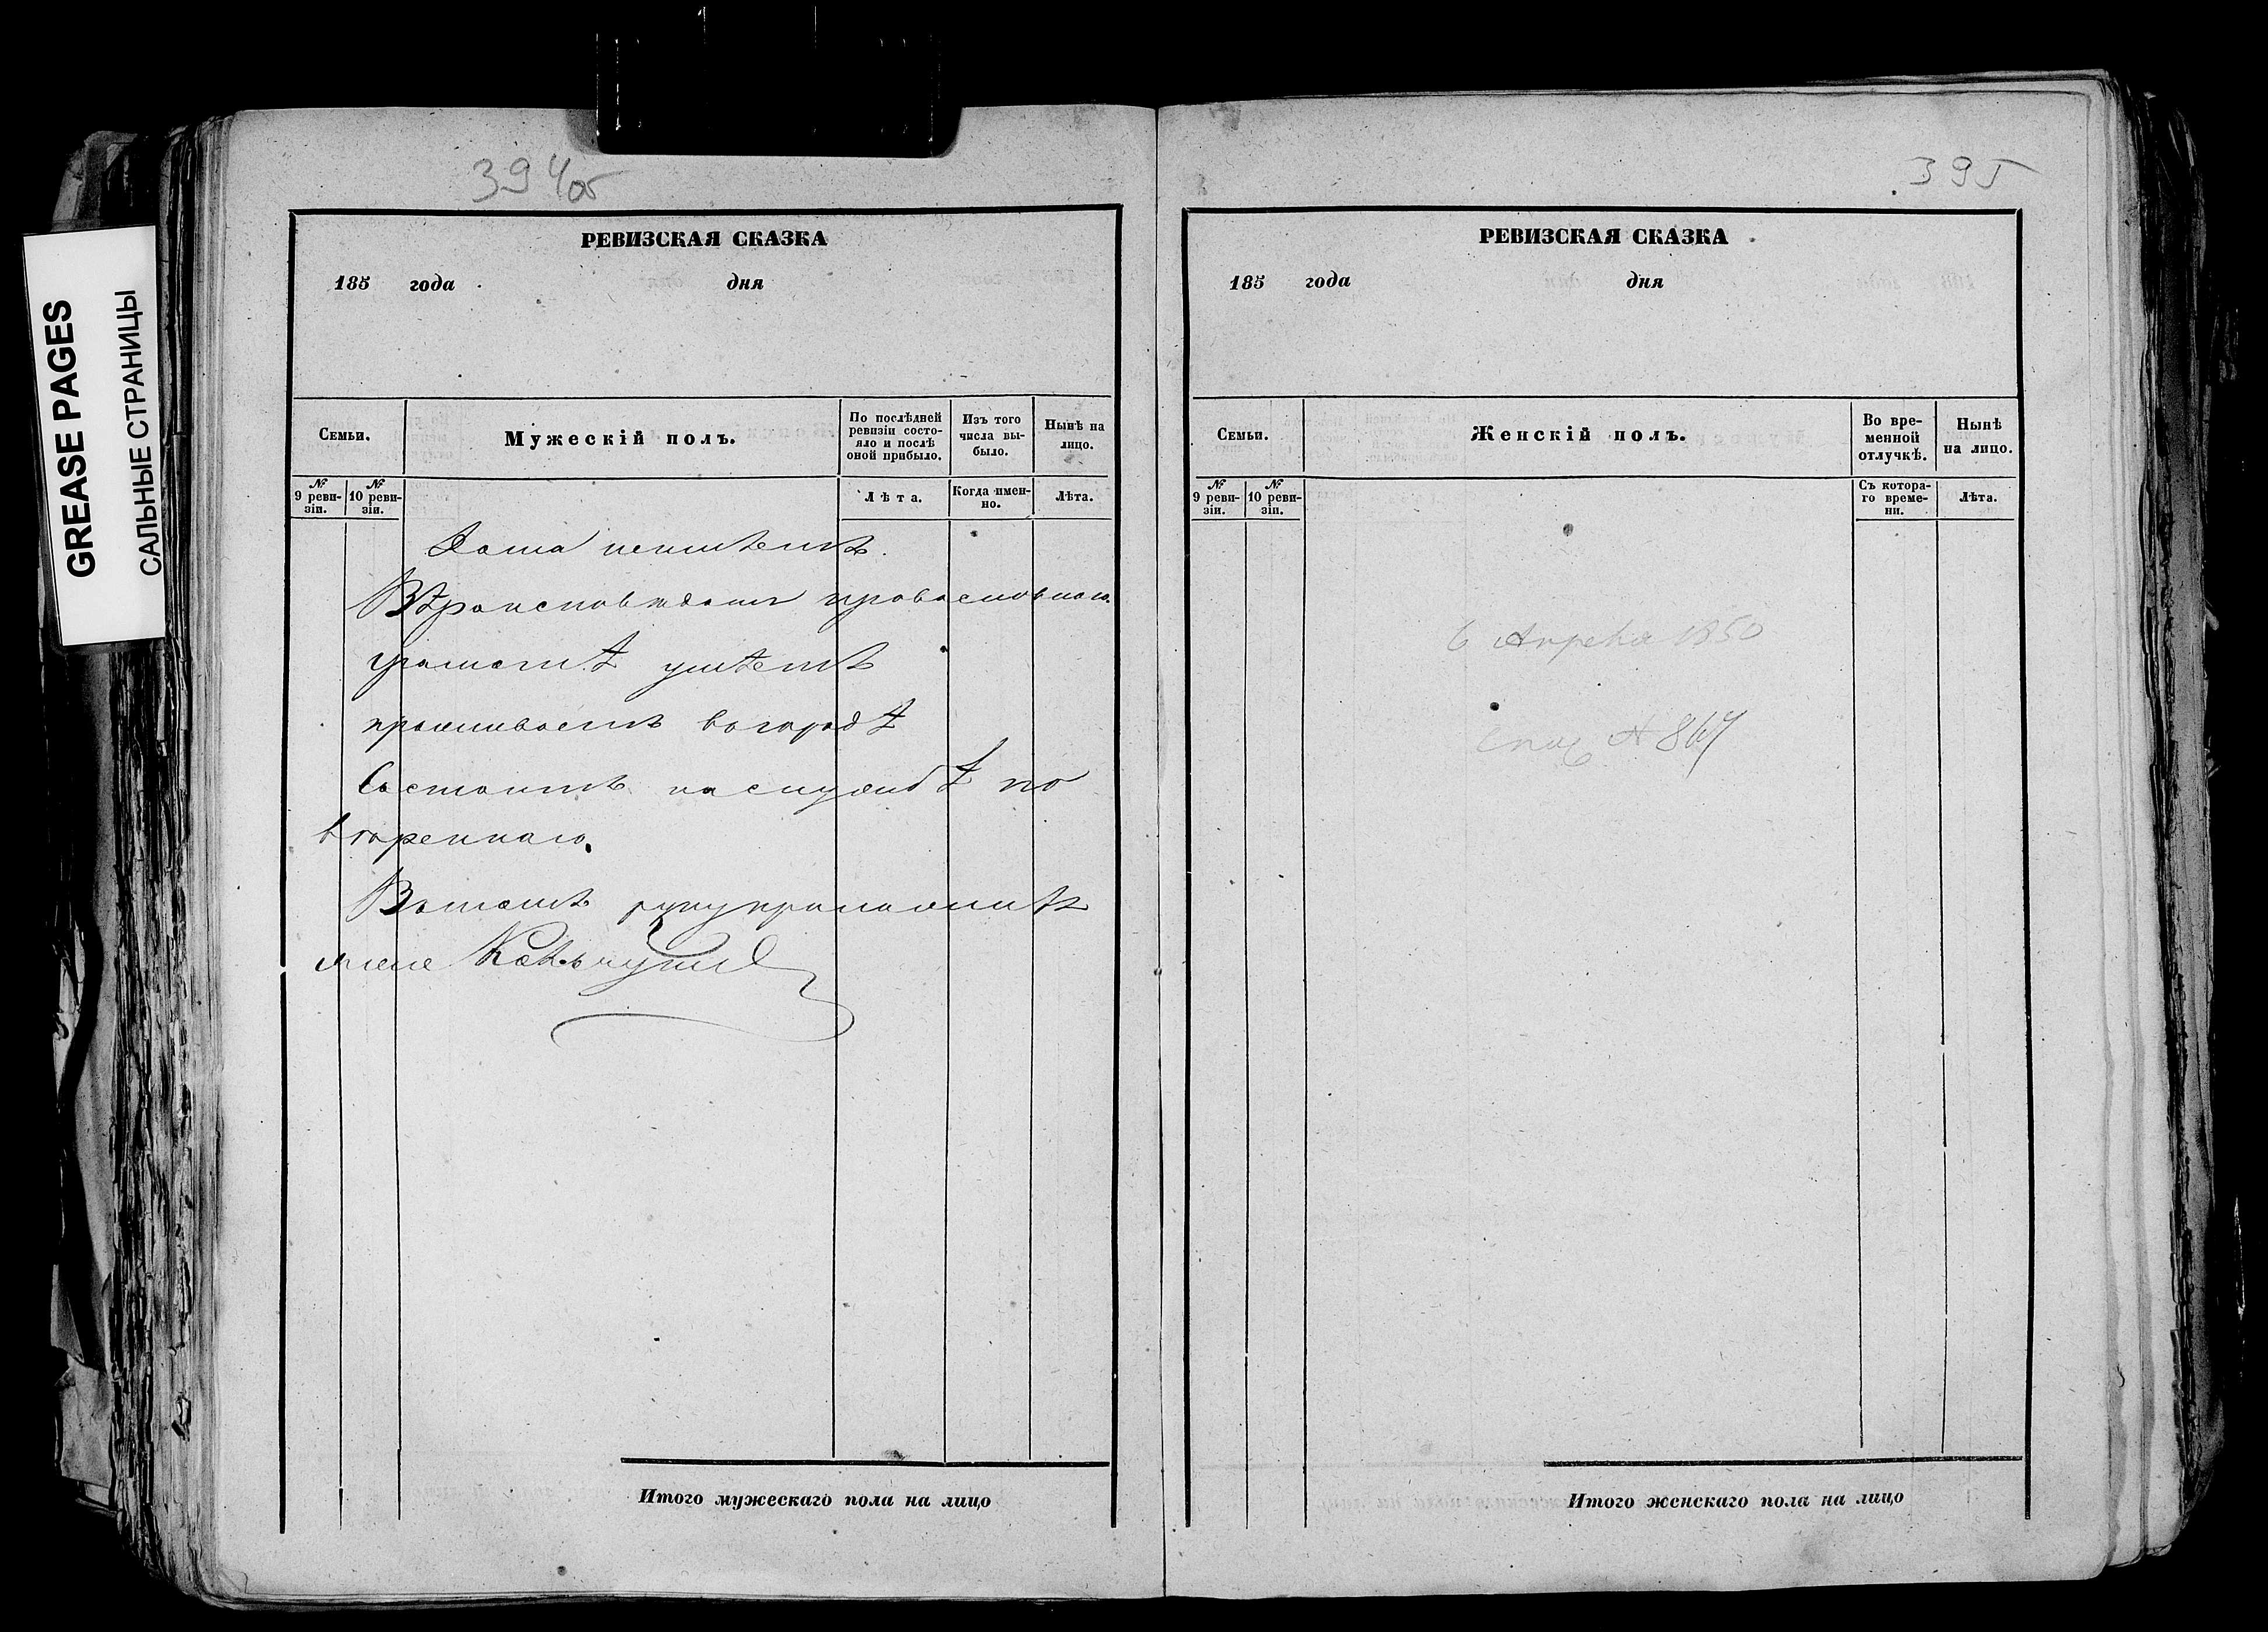 GREASE PAGES
САЛЬНЫЕ СТРАНИЦЫ
394об
РЕВИЗСКАЯ СКАЗКА
185 года дня
Семьи.
Мужескій полъ.
По послѣдней ревизіи состо-
яло и послѣ
оной прибыло.
Изъ того
числа вы-
было.
Нынѣ на
лицо.
№
9 реви-
зіи.
№
10 реви-
зіи.
Лѣта.
Когда имен-
но.
Лѣта.
Дома неимѣетъ.
Вѣроисповѣданія православнаго
Грамотѣ умѣетъ
проживаетъ вогородѣ
Состоитъ наслужбѣ по
Вотомъ рукуприложилъ
395
РЕВИЗСКАЯ СКАЗКА
185 года дня
Семьи.
Женскій полъ.
Во вре-
менной
отлучкѣ.
Нынѣ
на лицо.
№
9 реви-
зіи.
№
10 реви-
зіи.
Съ котора-
го време-
ни.
Лѣта.
6 Апреля 1850
№ 867
Итого мужескаго пола на лицо
Итого женскаго пола на лицо